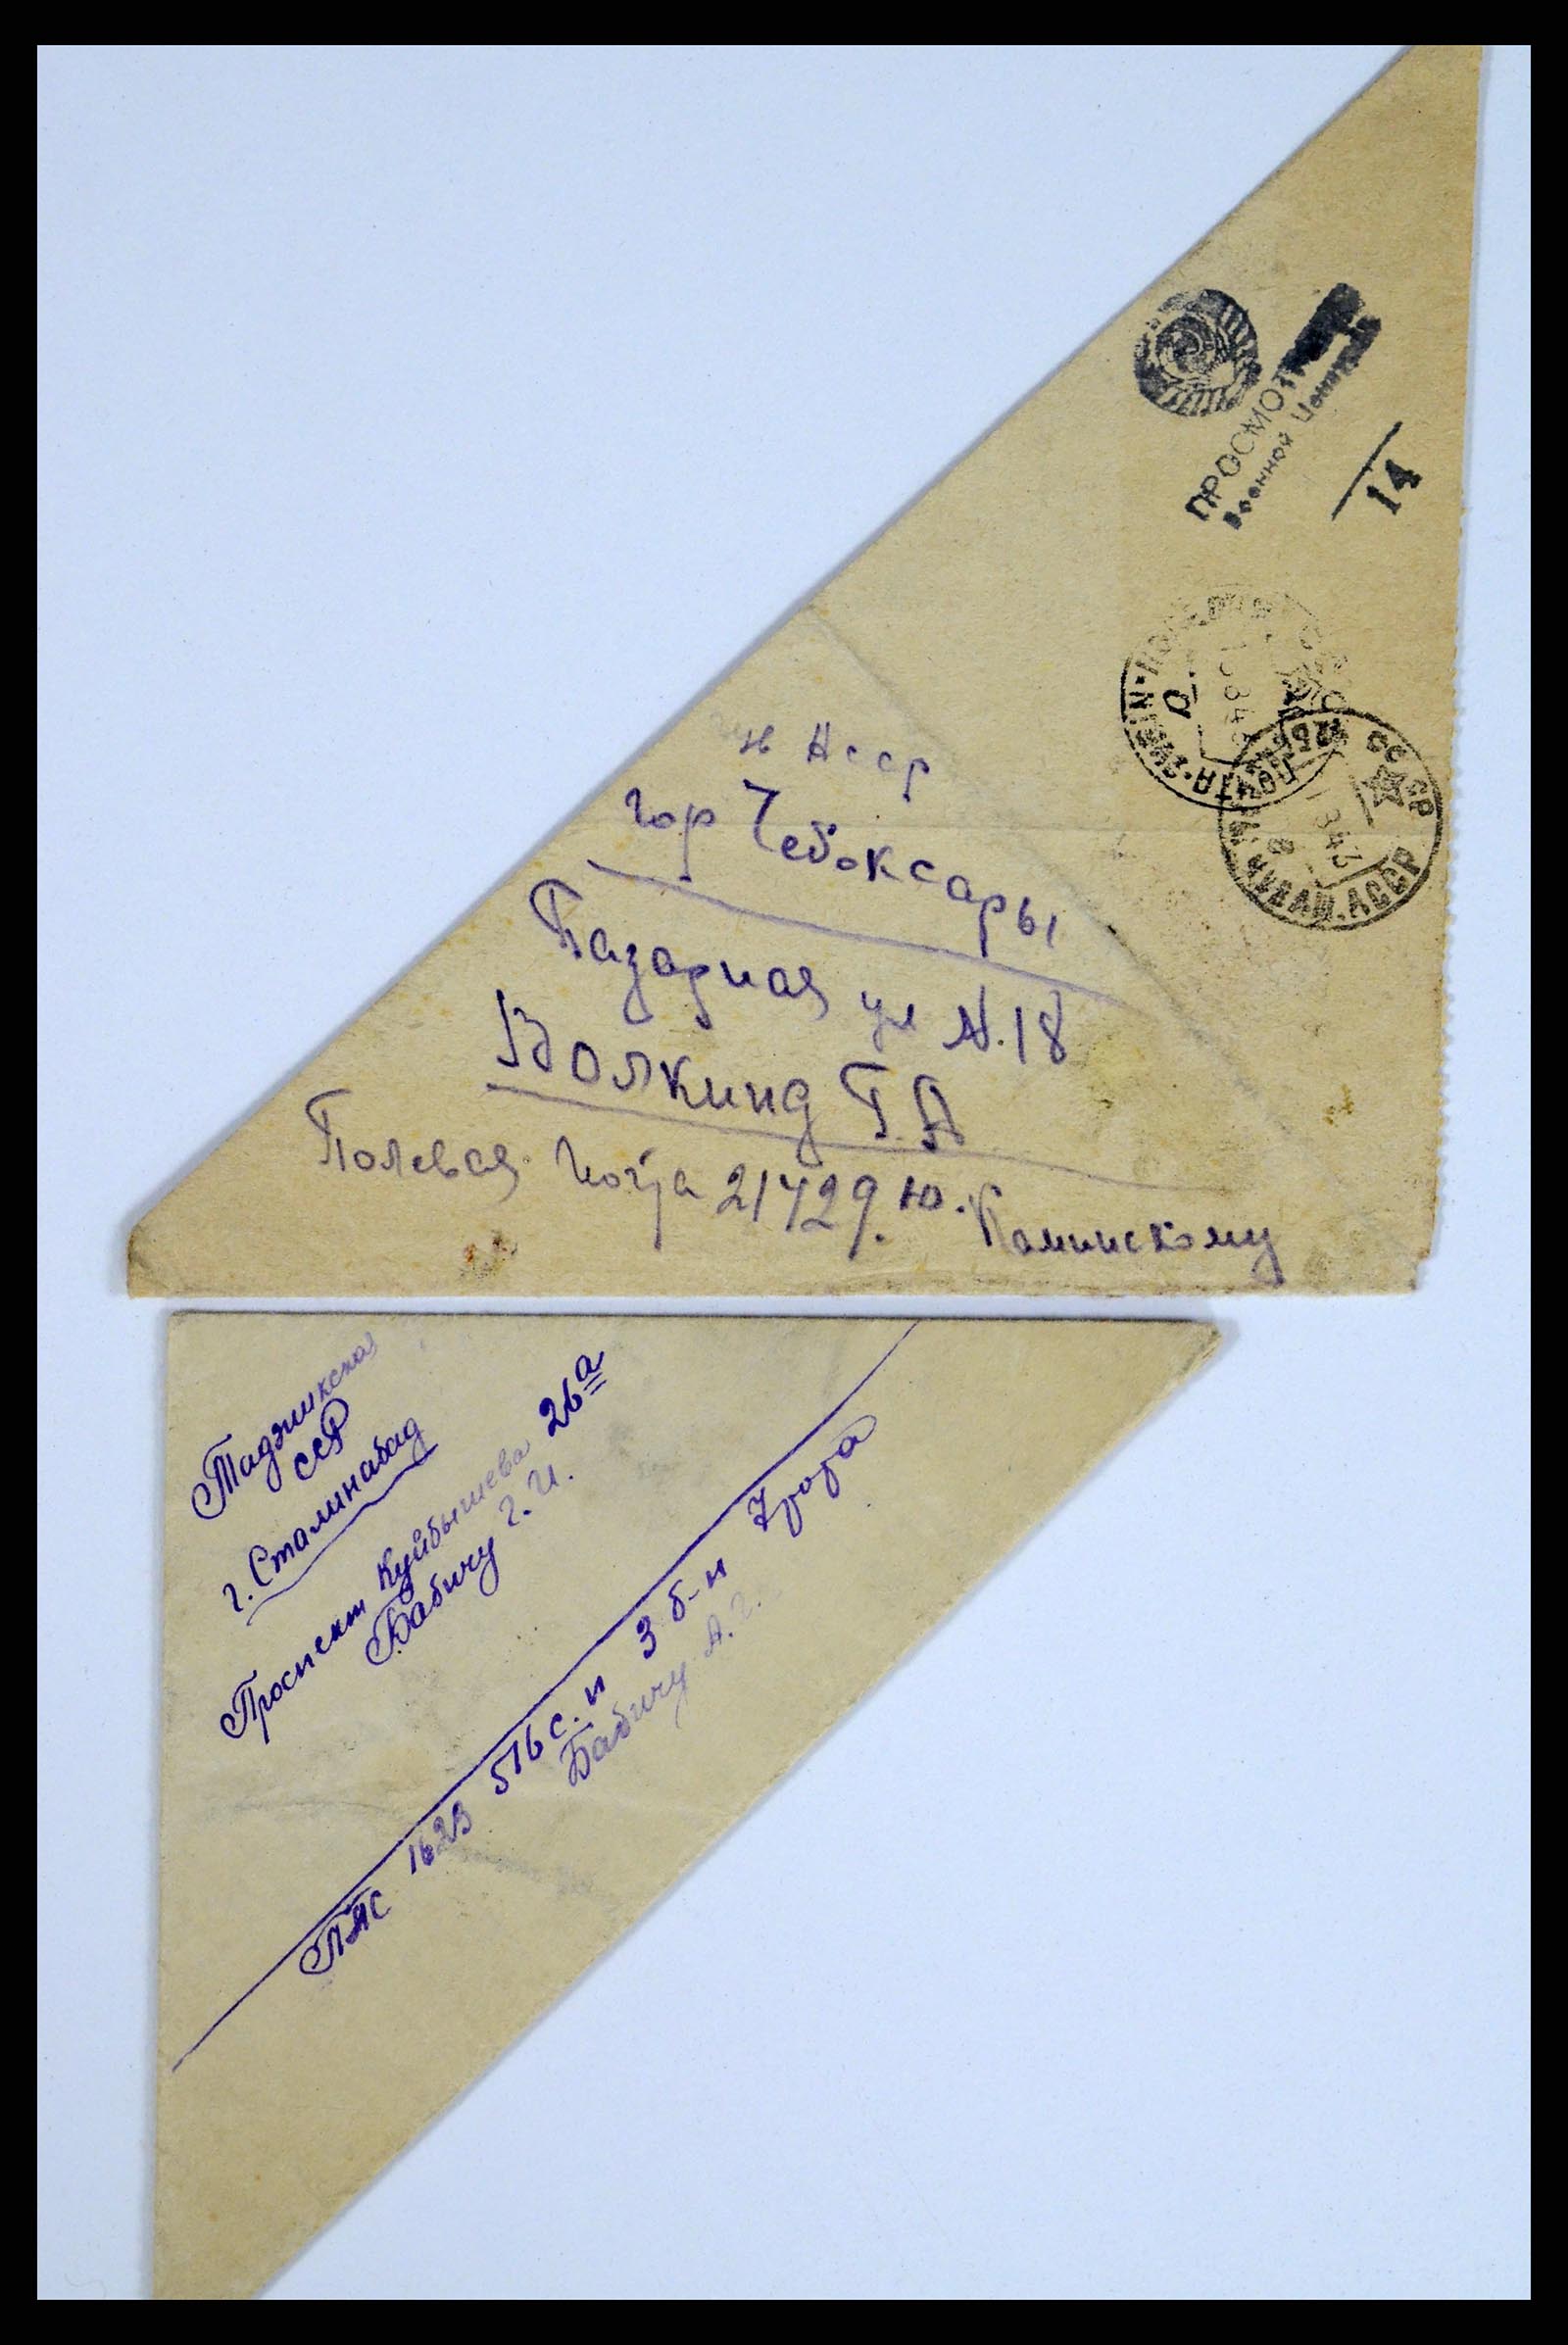 ПРОСМОТ
Военной Ценз
14
СССР
ЧУВАШ.АССР
АССР
гор Чебоксары
Базарная ул N.18
Волкинд Г А
Полевая почта 21429. Ю. Каминскому
Таджикская
ССР
г. Сталинабад
Проспект Куйбышева 26а
Бабичу Г. И.
ППС 1623 516 с. п 3 б-н 7 рота
Бабичу А. Г.